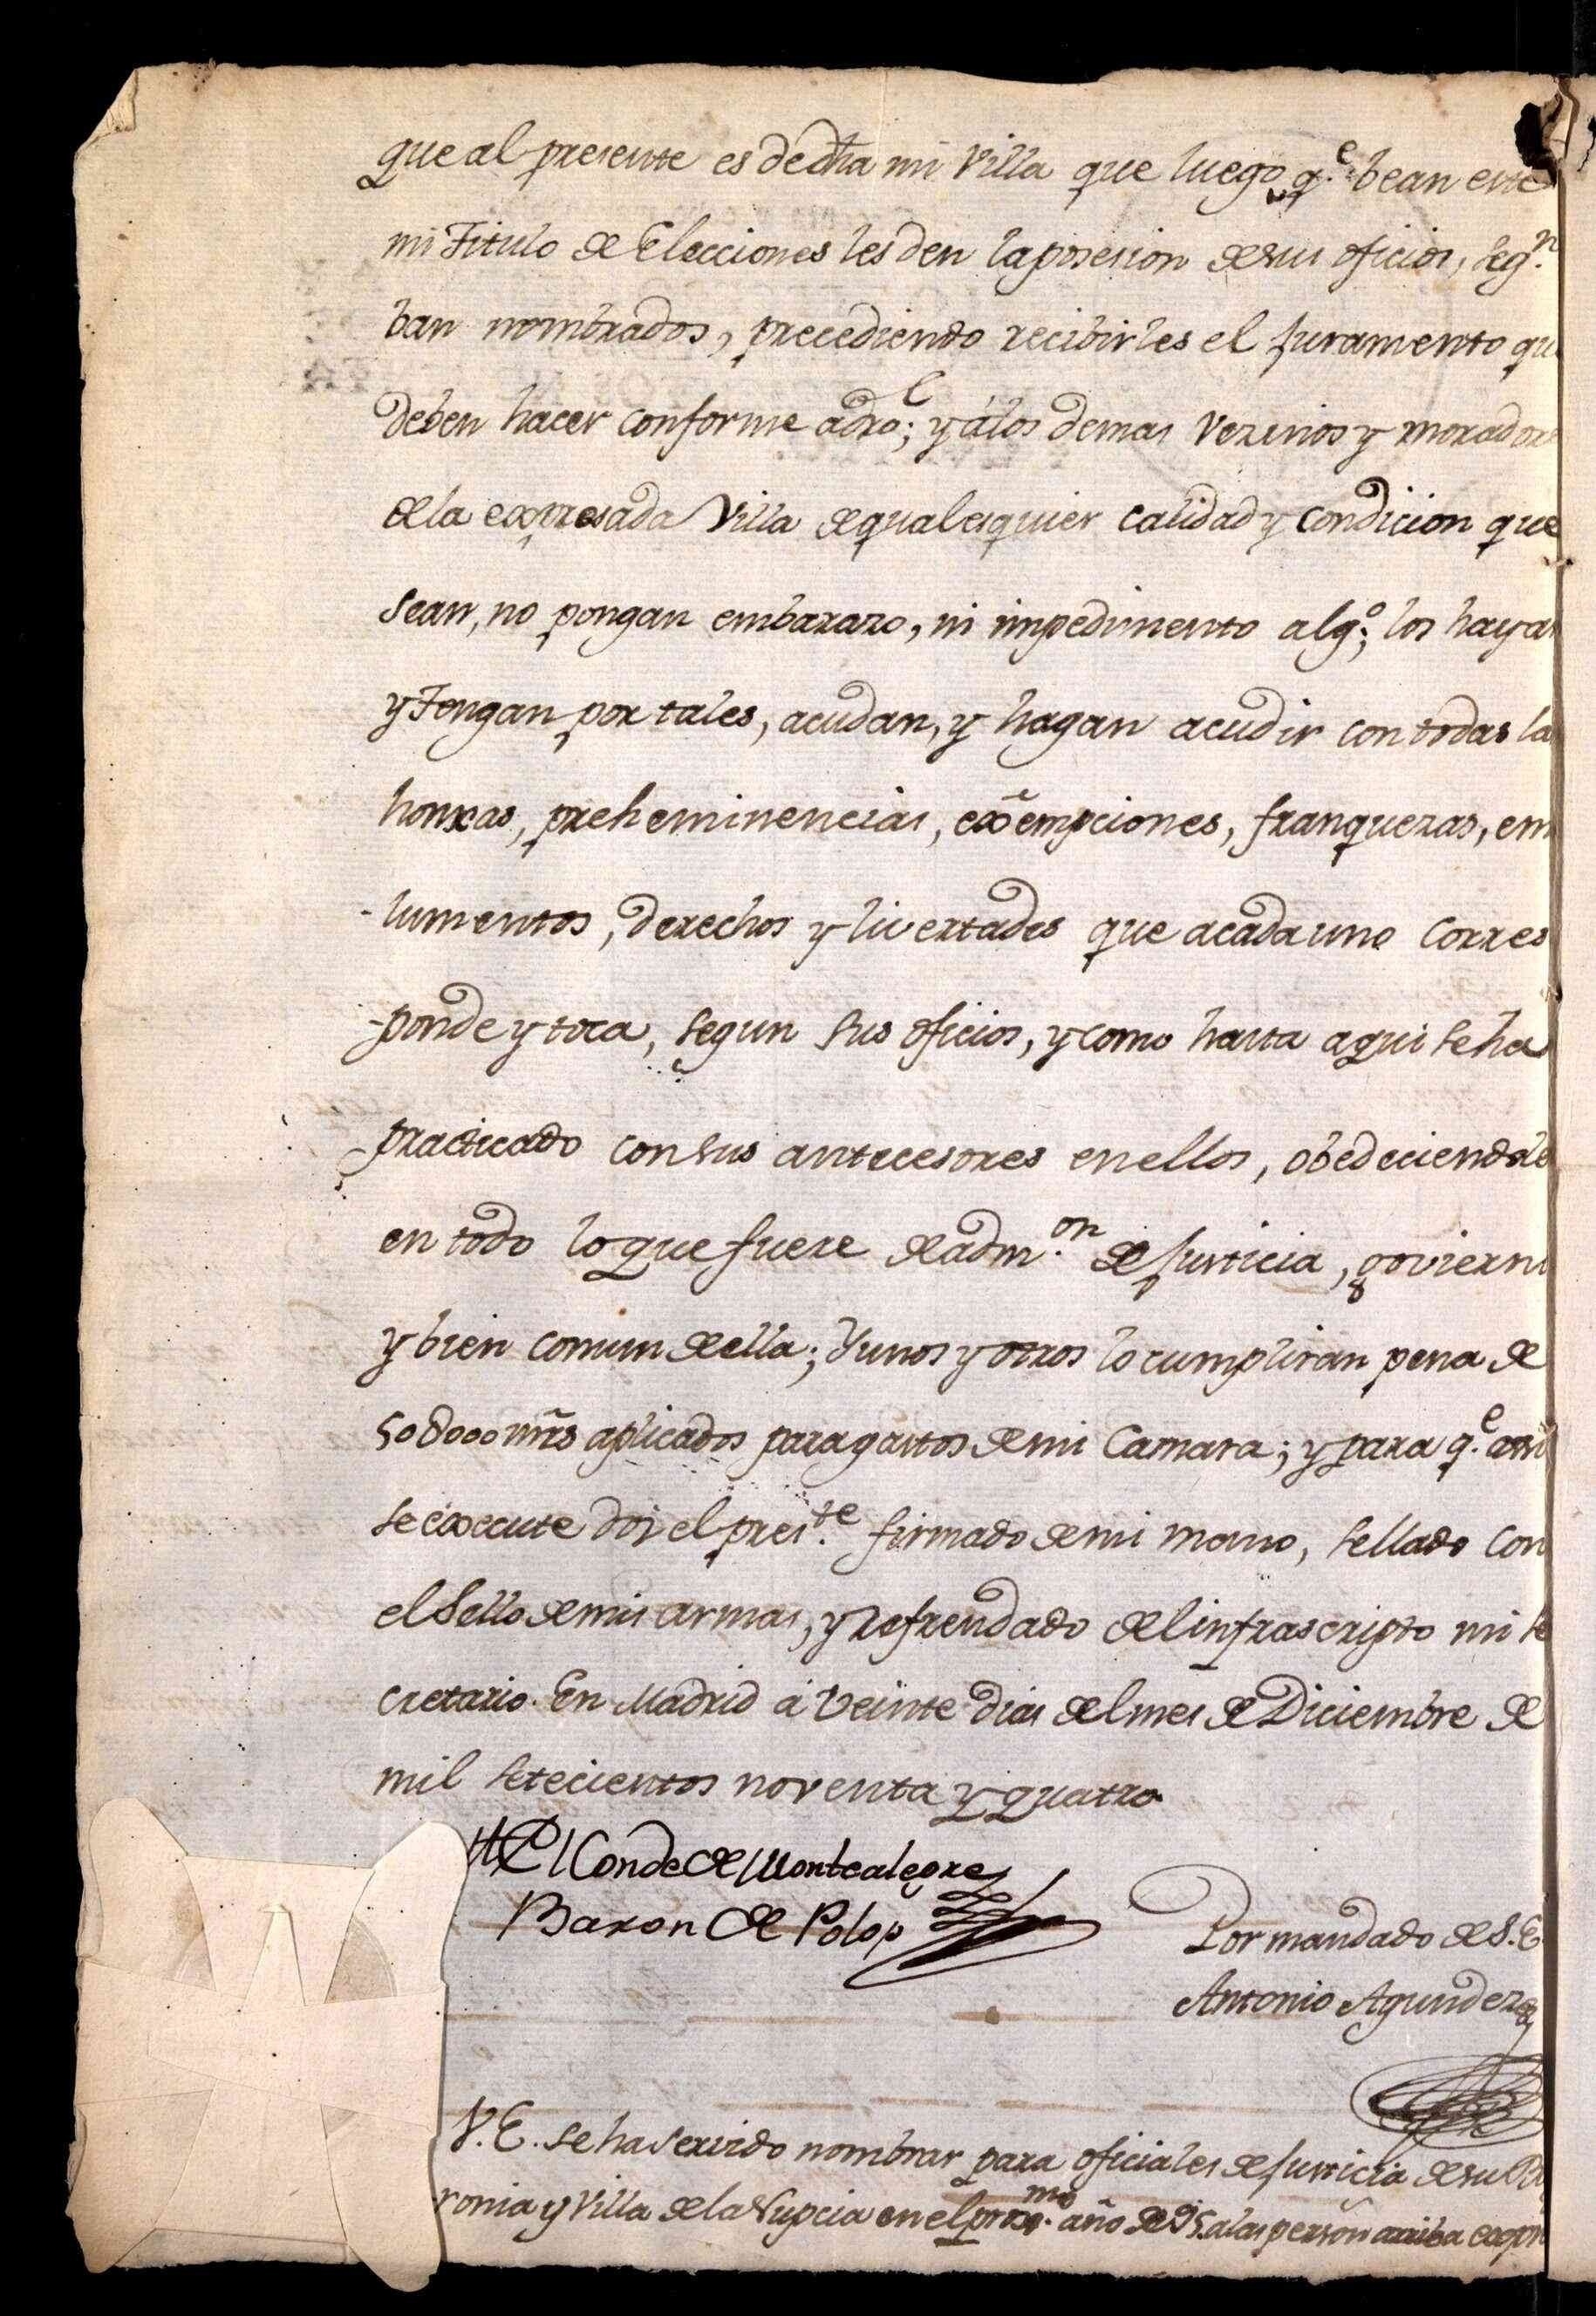 que al presente es de dha mi Villa que luego q.e bean este
mi Titulo de Elecciones les den la posesion de sus oficios, seg.n
ban nombrados, precediendo recibirles el juramento qu
deben hacer conforme a dro; y á los demas Vezinos y morador
de la expresada Villa de qualesquier calidad y condicion que
sean, no pongan embarazo, ni impedimento alg.o; los hayan
y Tengan por tales, acudan, y hagan acudir con todas la
honras, preheminencias, exêmpciones, franquezas, em
-lumentos, derechos y livertades que a cada uno corres
-ponde y toca, segun sus oficios, y como hasta aqui se ha
practicado con sus antecesores en ellos, obedeciendole
en todo lo que fuere de adm.on de Justicia, govierno
y bien comun de ella; Y unos y otros lo cumpliran pena de
50000 mrs aplicados para gastos de mi Camara; y para q.e assi
se execute doi el pres.te firmado de mi mano, sellado con
el Sello de mis armas, y refrendado del infrascripto mi se
cretario. En Madrid á veinte dias del mes de Diciembre de
mil setecientos noventa y quatro
El Conde de Montealegre
Baron de Polop
Por mandado de S.E.
Antonio Agundez
V.E. se ha servido nombrar para oficiales de Justicia de su Ba
ronia y Villa de la Nupcia en el prox.mo año de 95. a las person arriba expr